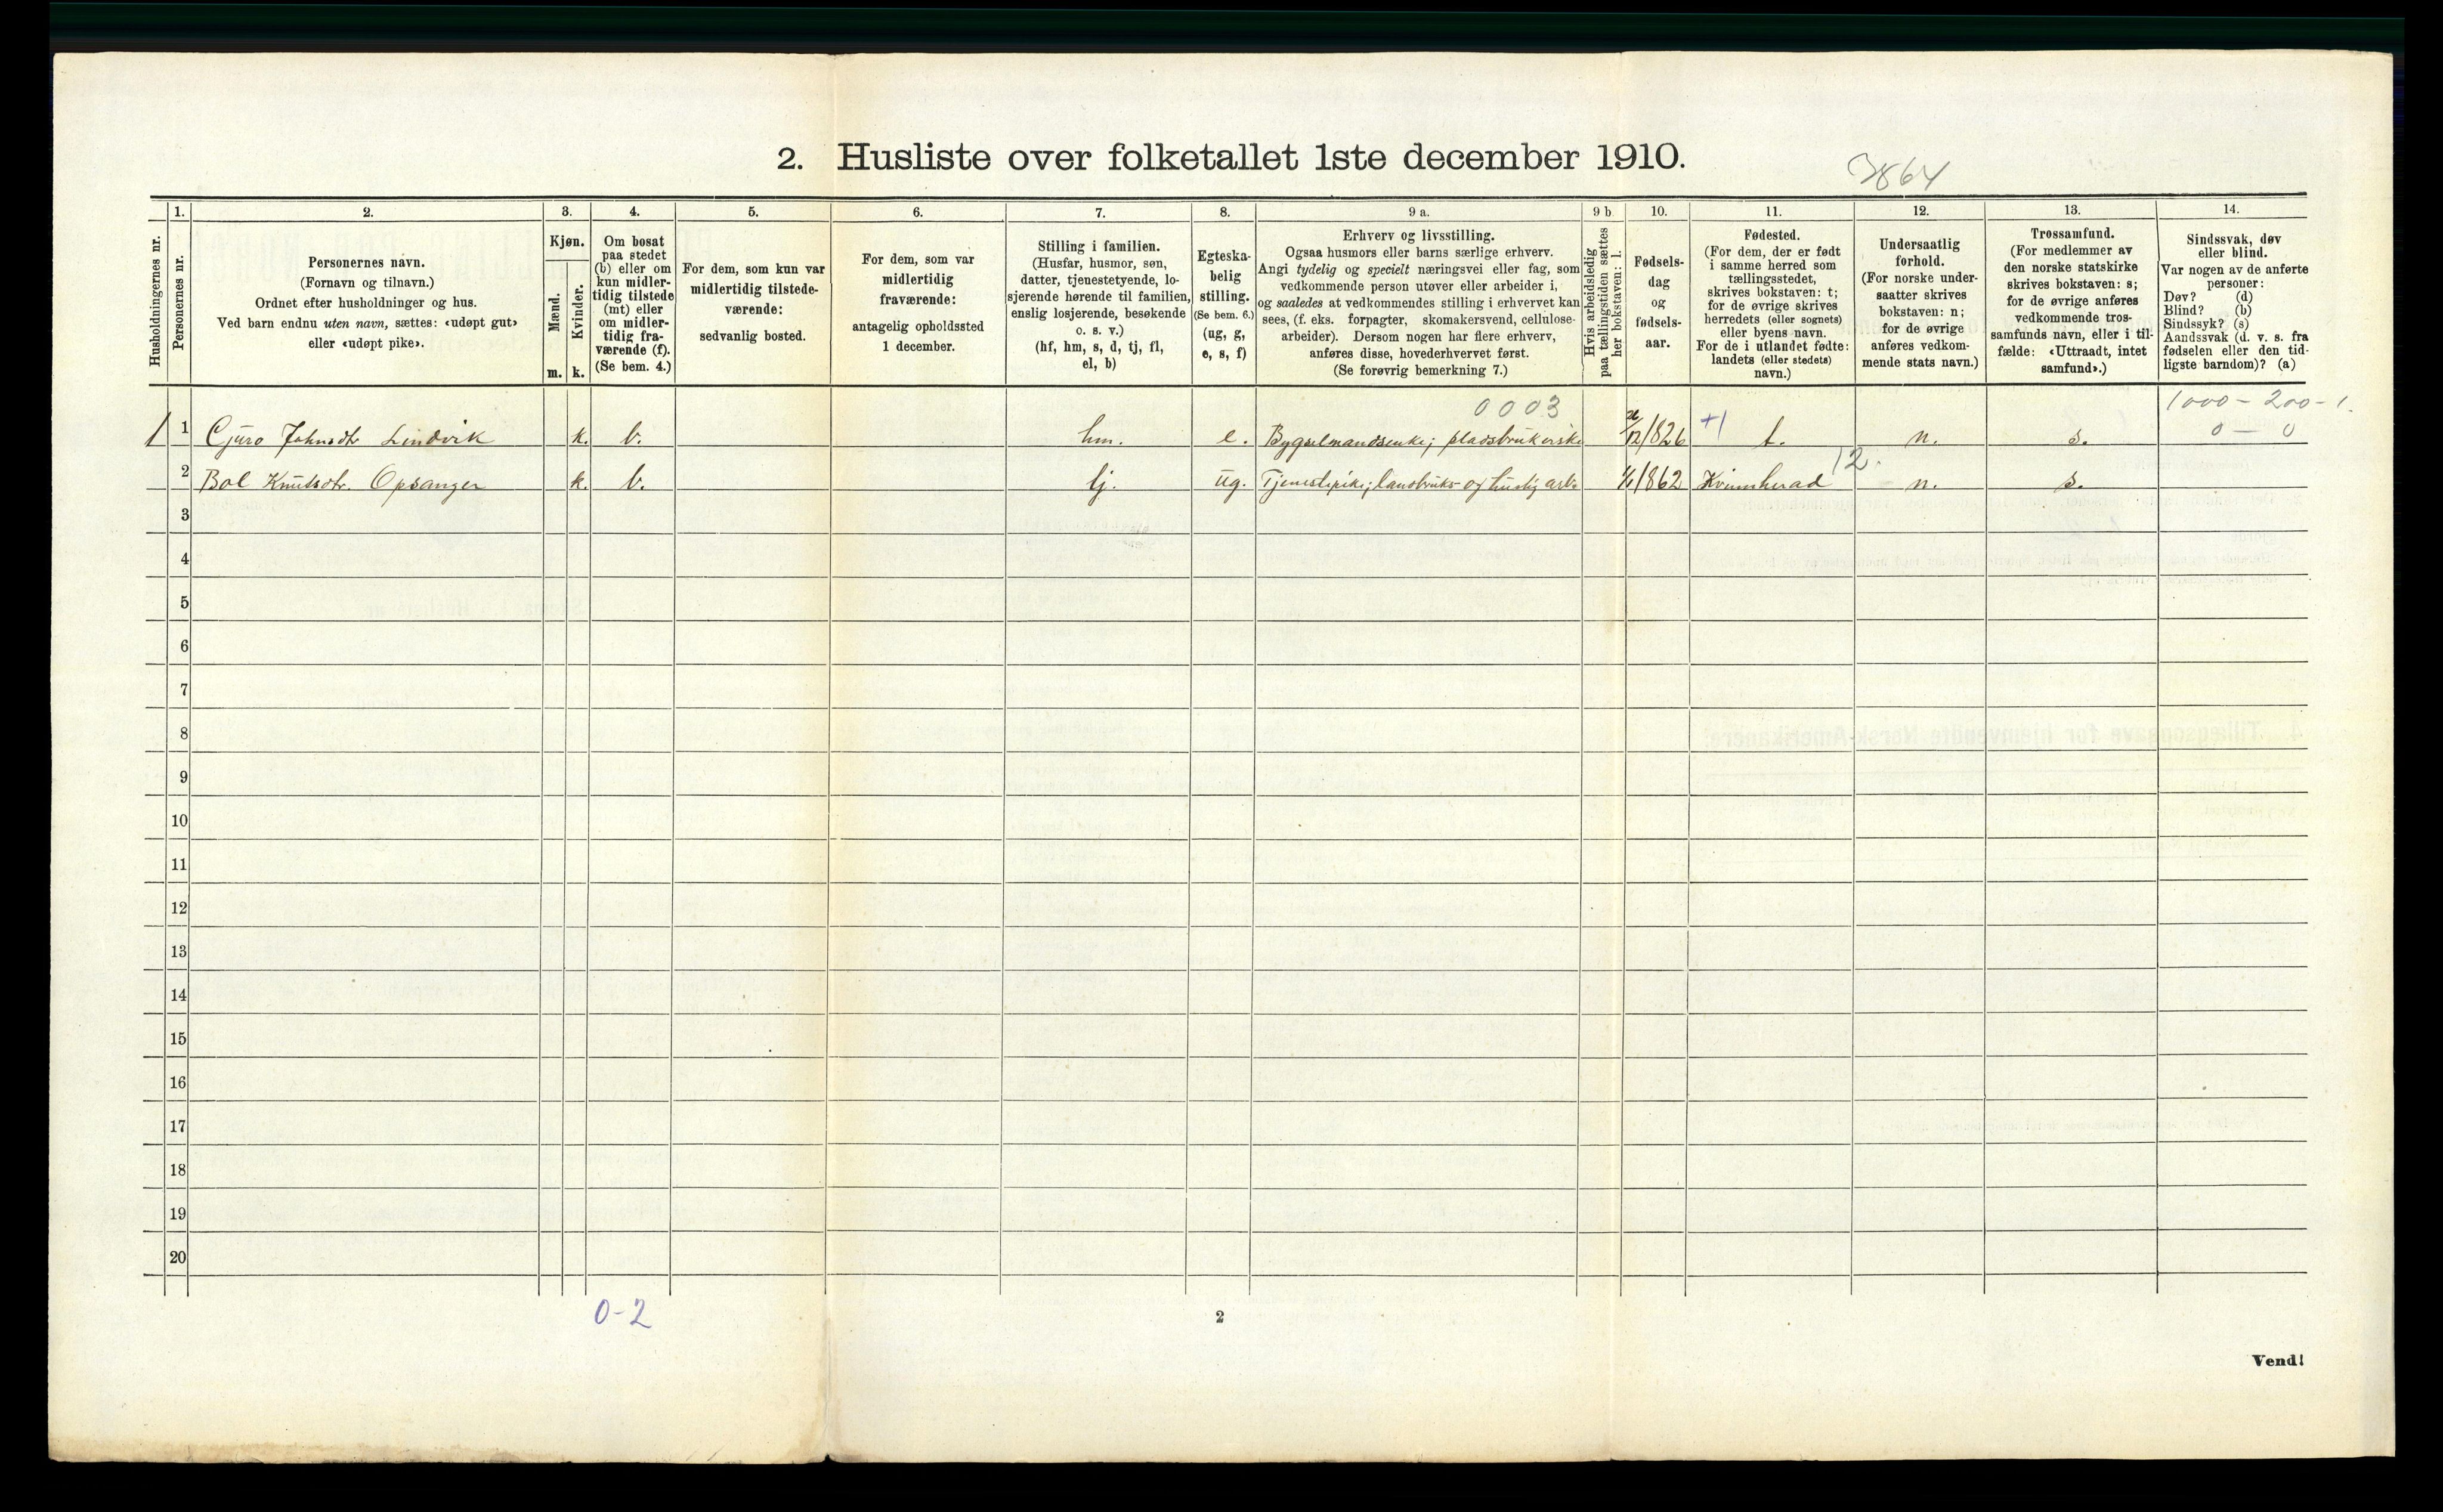 2. Husliste over folketallet 1ste december 1910.
3864
Husholdningernes nr.
1.
Personernes nr.
2.
Personernes navn.
(Fornavn og tilnavn.)
Ordnet efter husholdninger og hus.
Ved barn endnu uten navn, sættes: «udøpt gut»
eller «udøpt pike».
3.
Kjøn.
Mænd.
m.
Kvinder.
k.
4.
Om bosat
paa stedet
(b) eller om
kun midler-
tidig tilstede
(mt) eller
om midler-
tidig fra-
værende (f).
(Se bem. 4.)
5.
For dem, som kun var
midlertidig tilstede-
værende:
sedvanlig bosted.
6.
For dem, som var
midlertidig
fraværende:
antagelig opholdssted
1 december.
7.
Stilling i familien.
(Husfar, husmor, søn,
datter, tjenestetyende, lo-
sjerende hørende til familien,
enslig losjerende, besøkende
o. s. v.)
(hf, hm, s, d, tj, fl,
el, b)
8.
Egteska-
belig
stilling.
(Se bem. 6.)
(ug, g,
e, s, f)
9 a.
Erhverv og livsstilling.
Ogsaa husmors eller barns særlige erhverv.
Angi tydelig og specielt næringsvei eller fag, som
vedkommende person utøver eller arbeider i,
og saaledes at vedkommendes stilling i erhvervet kan
sees, (f. eks. forpagter, skomakersvend, cellulose-
arbeider). Dersom nogen har flere erhverv,
anføres disse, hovederhvervet først.
(Se forøvrig bemerkning 7.)
9 b
Hvis arbeidsledig
paa tællingstiden sættes
her bokstaven: l.
10.
Fødsels-
dag
og
fødsels-
aar.
11.
Fødested.
(For dem, der er født
i samme herred som
tællingsstedet,
skrives bokstaven: t;
for de øvrige skrives
herredets (eller sognets)
eller byens navn.
For de i utlandet fødte:
landets (eller stedets)
navn.)
12.
Undersaatlig
forhold.
(For norske under-
saatter skrives
bokstaven: n;
for de øvrige
anføres vedkom-
mende stats navn.)
13.
Trossamfund.
(For medlemmer av
den norske statskirke
skrives bokstaven: s;
for de øvrige anføres
vedkommende tros-
samfunds navn, eller i til-
fælde: «Uttraadt, intet
samfund».)
14.
Sindssvak, døv
eller blind.
Var nogen av de anførte
personer:
Døv? (d)
Blind? (b)
Sindssyk? (s)
Aandssvak (d. v. s. fra
fødselen eller den tid-
ligste barndom)? (a)
0003
1000 - 200 - 1.
0 - 0
1 1 Gjuro Johnsdtr Lindvik k. b. hm. e. Bygselmandsenke; pladsbrukerske /12/826 +1 t. n. s.
2 Bol Knutsdtr. Opsanger k. b. tj. ug. Tjenestepike; landbruks- og huslig arb. 1/1/862 Kvinnherad 12. n. s.
3
4
5
6
7
8
9
10
11
12
13
14
15
16
17
18
19
20
0-2
2
Vend!